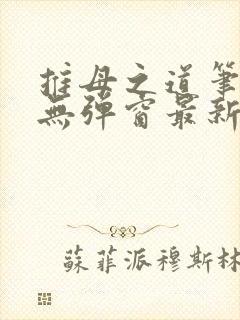 推母之道筆
無彈窗最新
蘇菲派穆斯林